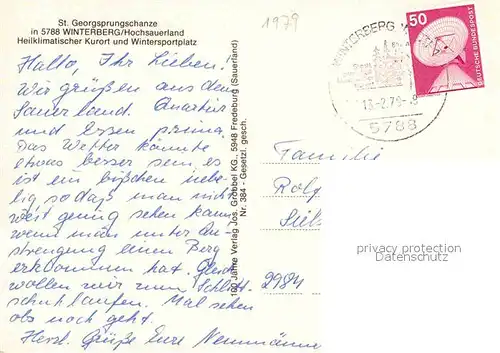 St. Georgsprungschanze
in 5788 WINTERBERG/Hochsauerland
Heilklimatischer Kurort und Wintersportplatz
1979
Hallo, Ihr Lieben!
Wir grüßen aus dem
Sauerland. Quartier
und Essen prima.
Das Wetter könnte
etwas besser sein, es
ist ein bißchen nebe-
lig sodaß man nicht
weit genug sehen kann
wenn man unter An-
strengung einen Berg
erklommen hat. Gleich
wollen wir zum Schlitt-
schuhlaufen. Mal sehen
ob's noch geht.
Herzl. Grüße Eure
100 Jahre Verlag Jos. Grobbel KG., 5948 Fredeburg (Sauerland)
Nr. 384 - Gesetzl. gesch.
WINTERBERG
13.-2.79-8
5788
50
DEUTSCHE BUNDESPOST
Familie
Rolf
2984
privacy protection
Datenschutz